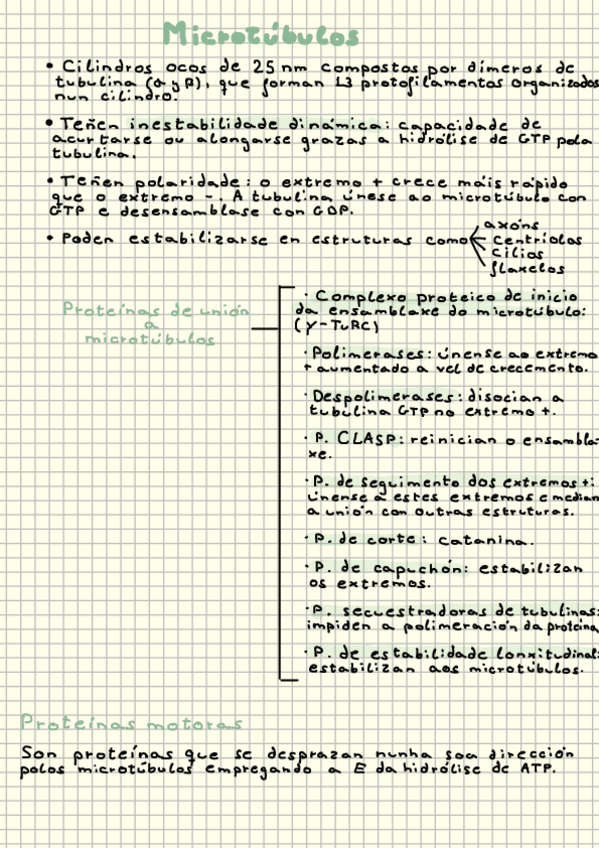 Microtúbulos
• Cilindros ocos de 25 nm compostos por dímeros de
tubulina (α y β), que forman 13 protofilamentos organizados
nun cilindro.
• Teñen inestabilidade dinámica: capacidade de
acurtarse ou alongarse grazas a hidrólise de GTP pola
tubulina.
• Teñen polaridade: o extremo + crece máis rápido
que o extremo -. A tubulina únese ao microtúbulo con
GTP e desensamblase con GDP.
• Poden estabilizarse en estruturas como
axóns
centríolos
cilios
flaxelos
Proteínas de unión
a
microtúbulos
· Complexo proteico de inicio
da ensamblaxe do microtúbulo:
(γ-TuRC)
· Polimerases: únense ao extremo
+ aumentado a vel de crecemento.
· Despolimerases: disocian a
tubulina GTP no extremo +.
· P. CLASP: reinician o ensambla-
xe.
· P. de seguimento dos extremos +:
únense a estes extremos e median
a unión con outras estruturas.
· P. de corte: catanina.
· P. de capuchón: estabilizan
os extremos.
· P. secuestradoras de tubulinas:
impiden a polimeración da proteína
· P. de estabilidade lonxitudinal:
estabilizan aos microtúbulos.
Proteínas motoras
Son proteínas que se desprazan nunha soa dirección
polos microtúbulos empregando a E da hidrólise de ATP.